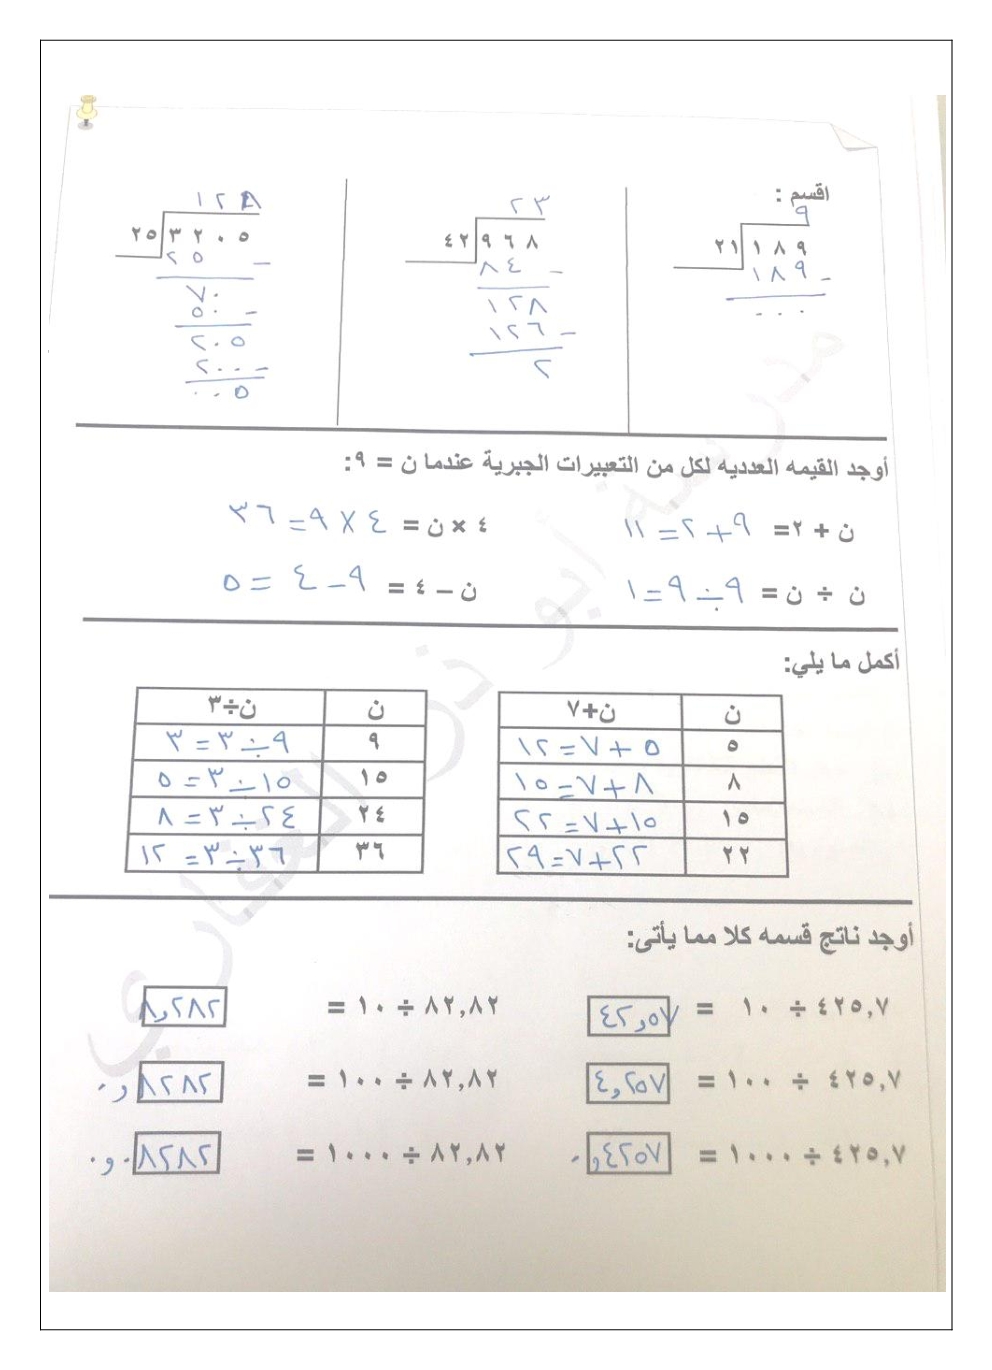 اقسم :
٩
٢١ ١٨٩
١٨٩ -
٠٠٠
٢٣
٤٢ ٩٦٨
٨٤ -
١٢٨
١٢٦ -
٢
٢٥ ٣٢٠٥
٢٥ -
٧٠
٥٠ -
٢٠٥
٢٠٠ -
٠٠٥
أوجد القيمه العدديه لكل من التعبيرات الجبرية عندما ن = ٩:
ن + ٢= ٩+٢=١١ ٤ × ن = ٤ × ٩=٣٦
ن ÷ ن = ٩÷٩=١ ن – ٤ = ٩-٤ =٥
أكمل ما يلي:
ن ن+٧ ن ن÷٣
٥ ٥+٧=١٢ ٩ ٩÷٣=٣
٨ ٨+٧=١٥ ١٥ ١٥÷٣=٥
١٥ ١٥+٧=٢٢ ٢٤ ٢٤÷٣=٨
٢٢ ٢٢+٧=٢٩ ٣٦ ٣٦÷٣=١٢
أوجد ناتج قسمه كلا مما يأتى:
٤٢٥,٧ ÷ ١٠ = ٤٢,٥٧ ٨٢,٨٢ ÷ ١٠ = ٨,٢٨٢
٤٢٥,٧ ÷ ١٠٠ = ٤,٢٥٧ ٨٢,٨٢ ÷ ١٠٠ = ٠,٨٢٨٢
٤٢٥,٧ ÷ ١٠٠٠ = ٠,٤٢٥٧ ٨٢,٨٢ ÷ ١٠٠٠ = ٠,٠٨٢٨٢
مدرسة ابو ذر الغفاري